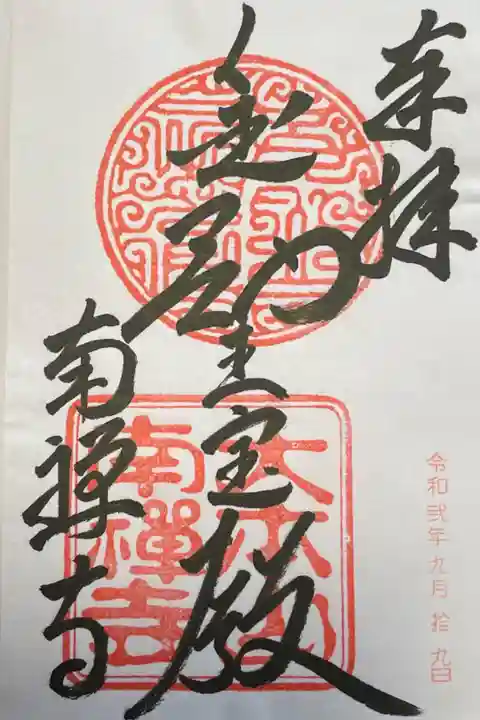 奉拝
金剛王宝殿
南禅寺
大本山
南禪寺
令和弐年九月拾九日